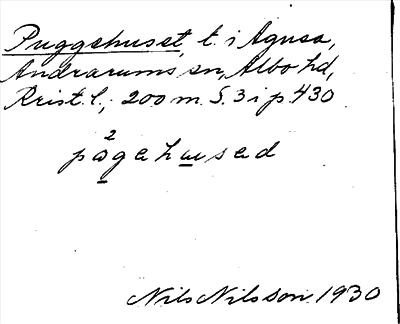 Puggehuset, t. i Agusa,
Andrarums sn, Albo hd,
Krist. l., 200 m. S. 3 i p. 430
2
pogehused
Nils Nilsson 1930